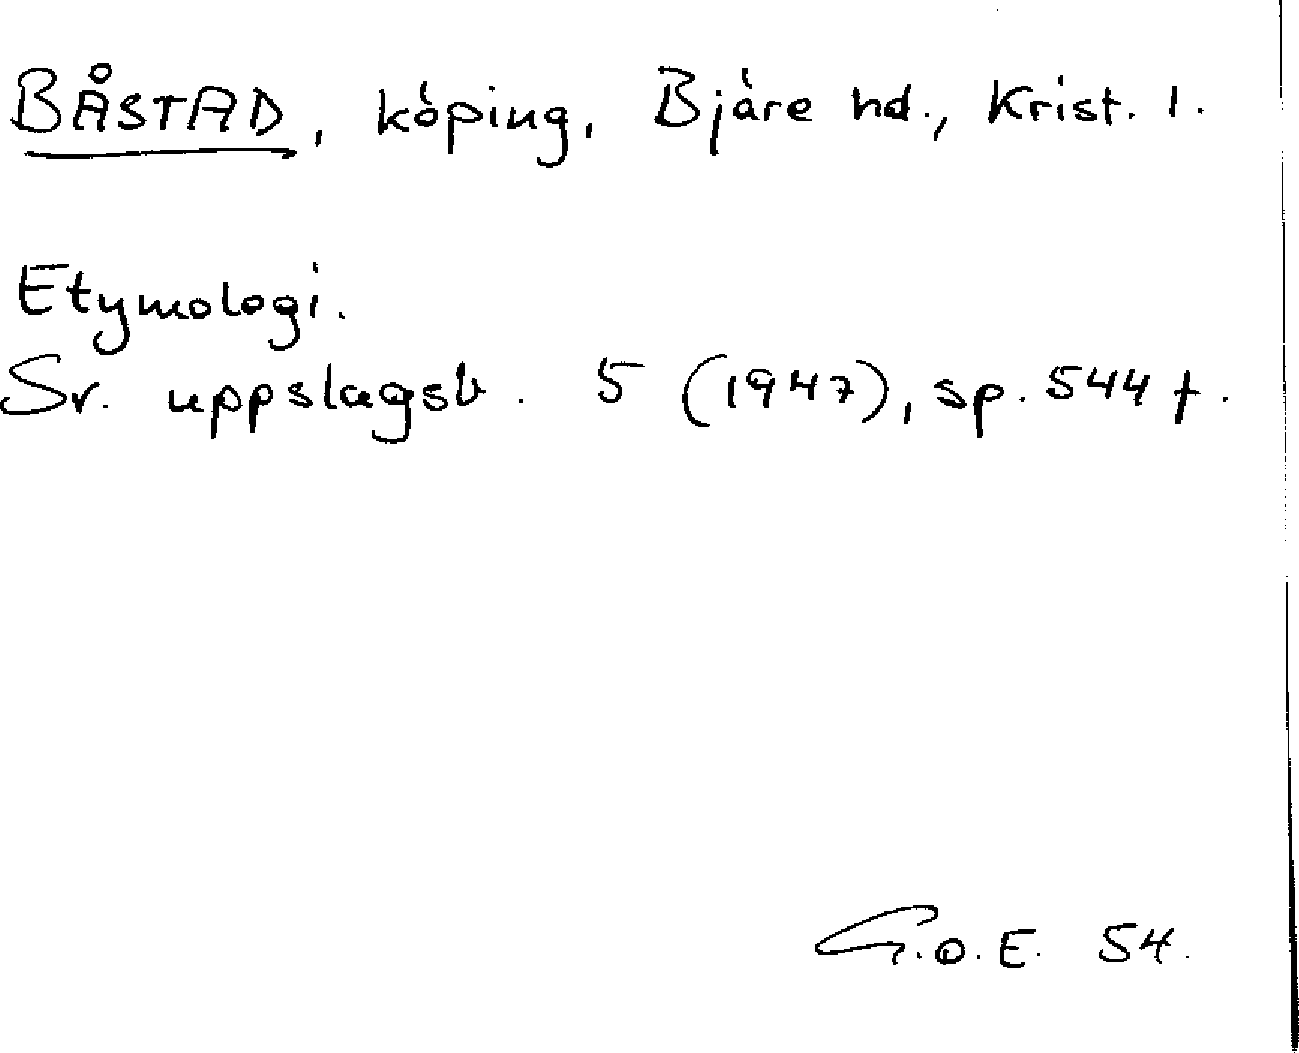 BÅSTAD, köping, Bjäre hd., Krist. l.
Etymologi.
Sv. uppslagsb. 5 (1947), sp. 544 f.
G.O.E. 54.